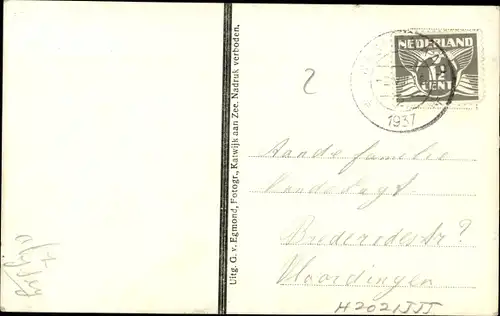 Uitg. G. v. Egmond, Fotogr., Katwijk aan Zee. Nadruk verboden.
2
NEDERLAND
1½
CENT
1937
Aan de familie
Brederodestr?
Vlaardingen
H2021III